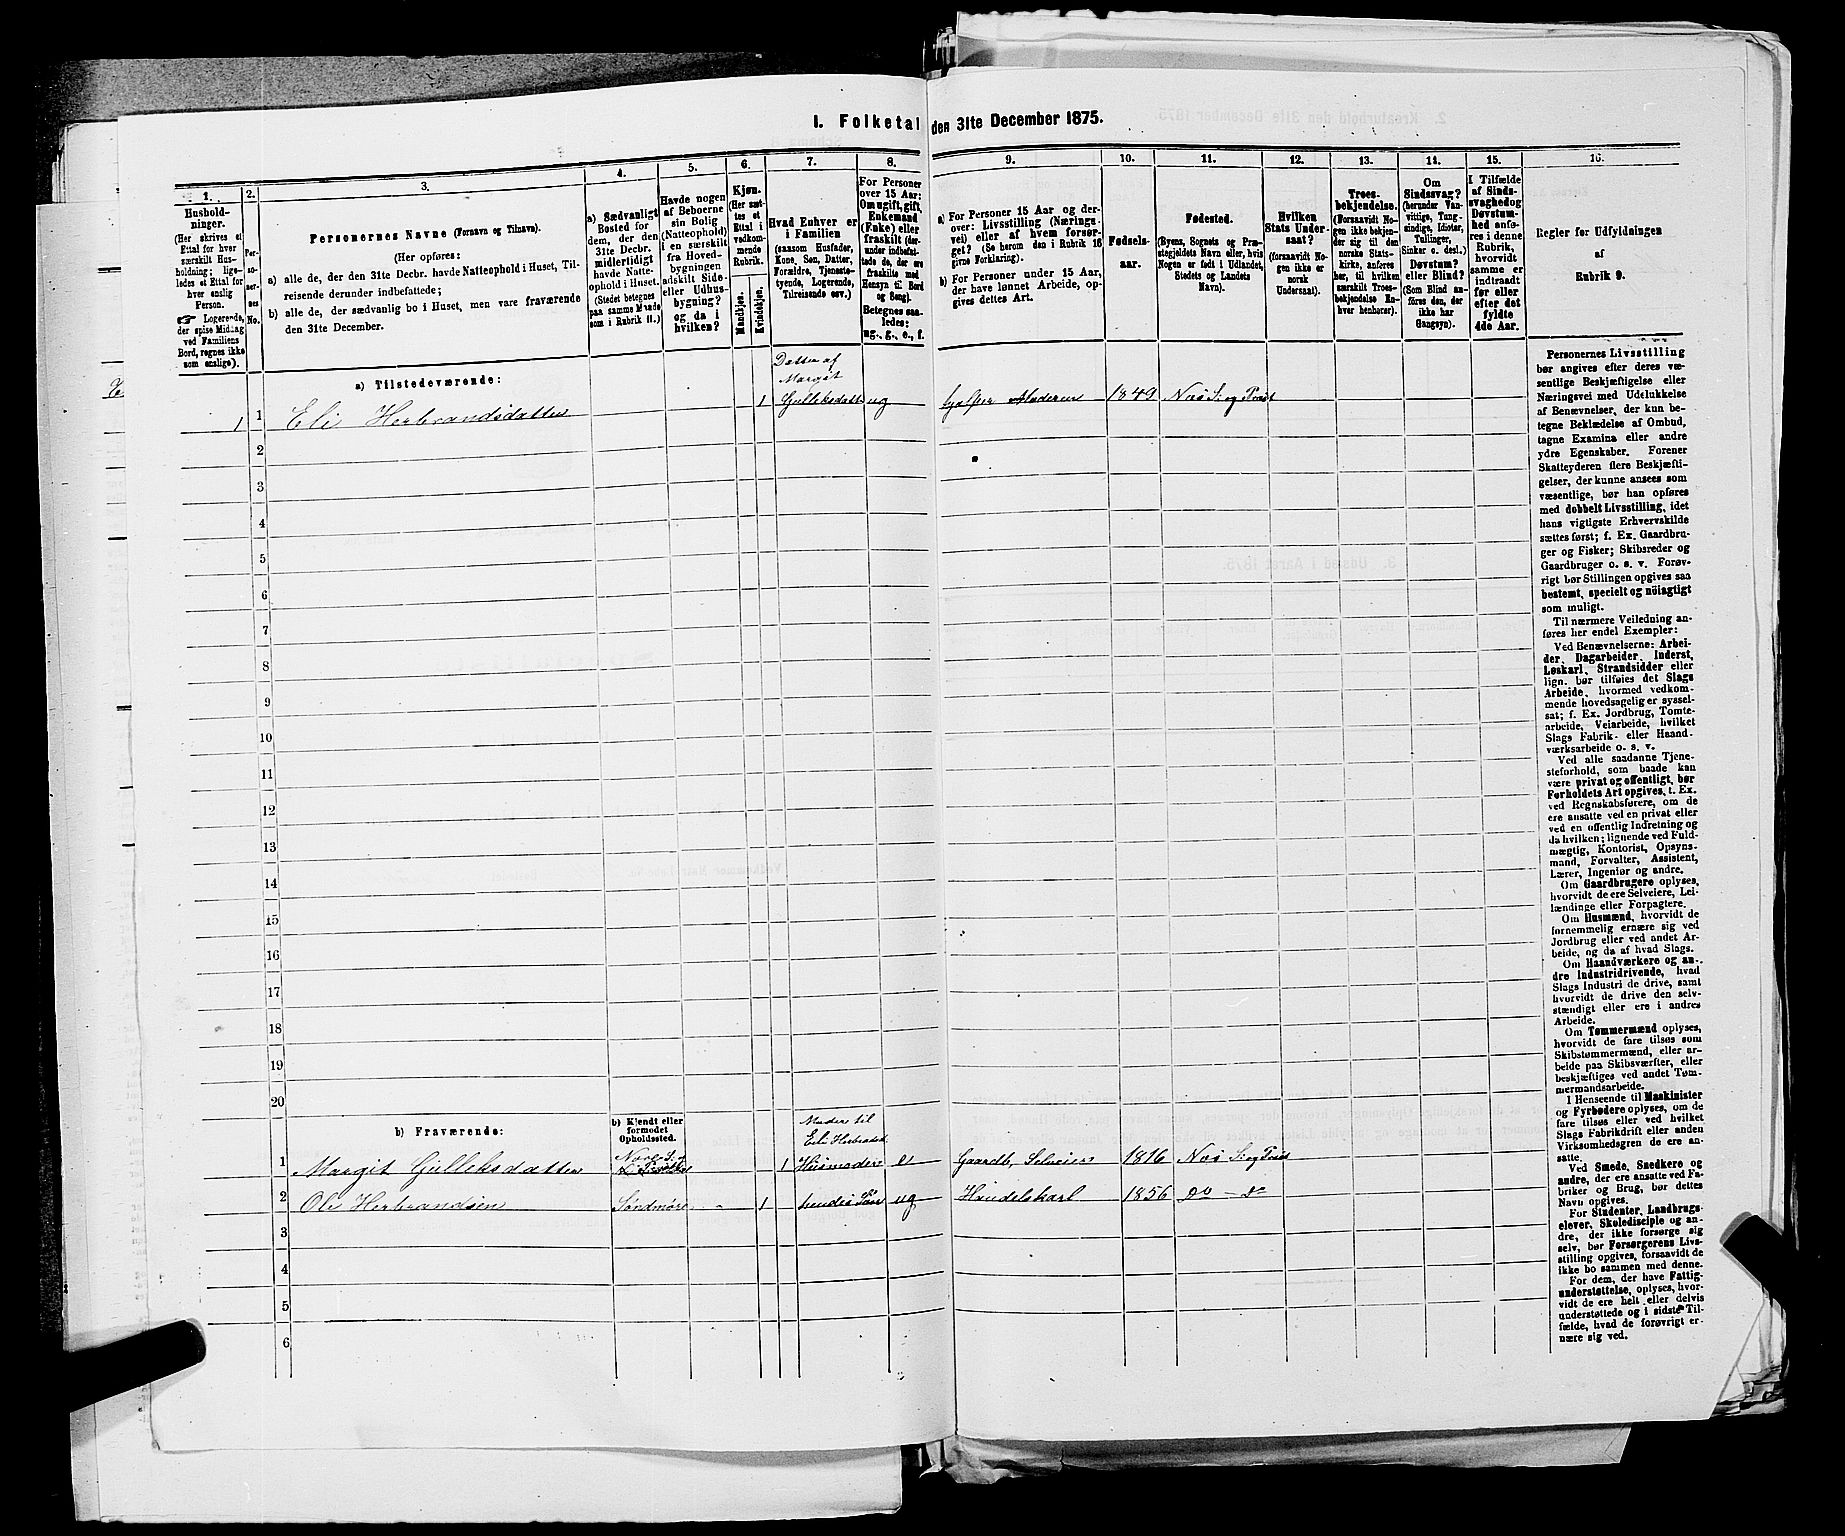 I. Folketal den 31te December 1875.
1.
Hushold-
ninger.
(Her skrives et
Ettal for hver
særskilt Hus-
holdning; lige-
ledes et Ettal for
hver enslig
Person.
☞ Logerende,
der spise Middag
ved Familiens
Bord, regnes ikke
som enslige).
2.
Per-
so-
ner-
nes
No.
3.
Personernes Navne (Fornavn og Tilnavn).
(Her opføres:
a) alle de, der den 31te Decbr. havde Natteophold i Huset, Til-
reisende derunder indbefattede;
b) alle de, der sædvanlig bo i Huset, men vare fraværende
den 31te December.
4.
a) Sædvanligt
Bosted for
dem, der den
31te Decbr.
midlertidigt
havde Natte-
ophold i Huset.
(Stedet betegnes
paa samme Maade
som i Rubrik 11.)
5.
Havde nogen
af Beboerne
sin Bolig
(Natteophold)
i en særskilt
fra Hoved-
bygningen
adskilt Side-
eller Udhus-
bygning?
og da i
hvilken?
6.
Kjøn.
(Her sæt-
tes et
Ettal i
vedkom-
mende
Rubrik.
Mandkjøn.
Kvindekjøn.
7.
Hvad Enhver er
i Familien
(saasom Husfader,
Kone, Søn, Datter,
Forældre, Tjeneste-
tyende, Logerende,
Tilreisende osv.)
8.
For Personer
over 15 Aar:
Om ugift, gift,
Enkemand
(Enke) eller
fraskilt (der-
under indbefat-
tede de, der ere
fraskilte med
Hensyn til Bord
og Seng).
Betegnes saa-
ledes:
ug., g., e., f.
9.
a) For Personer 15 Aar og der-
over: Livsstilling (Nærings-
vei) eller af hvem forsør-
get? (Se herom den i Rubrik 16
givne Forklaring).
b) For Personer under 15 Aar,
der have lønnet Arbeide, op-
gives dettes Art.
10.
Fødsels-
aar.
11.
Fødested.
(Byens, Sognets og Præ-
stegjeldets Navn eller, hvis
Nogen er født i Udlandet,
Stedets og Landets
Navn).
12.
Hvilken
Stats Under-
saat?
(forsaavidt No-
gen ikke er
norsk
Undersaat).
13.
Troes-
bekjendelse.
(Forsaavidt No-
gen ikke bekjen-
der sig til den
norske Stats-
kirke, anføres
her, til hvilken
særskilt Troes-
bekjendelse En-
hver henhører).
14.
Om
Sindssvag?
(herunder Van-
vittige, Tung-
sindige, Idioter,
Tullinger,
Sinker o. desl.)
Døvstum?
eller Blind?
(Som Blind an-
føres den, der
ikke har
Gangsyn).
15.
I Tilfælde
af Sinds-
svaghed og
Døvstum-
hed anfø-
res i denne
Rubrik,
hvorvidt
samme er
indtraadt
før eller
efter det
fyldte
4de Aar.
16.
Regler for Udfyldningen
af
Rubrik 9.
a) Tilstedeværende:
1 1 Eli Herbrandsdatter 1 Datter af Margit Gulleksdatt ug hjelper Moderen 1849 Næs S. og Præst
2
3
4
5
6
7
8
9
10
11
12
13
14
15
16
17
18
19
20
b) Fraværende:
b) Kjendt eller
formodet
Opholdssted.
1 Margit Gulleksdatter 1 Modere til Eli Herbrdsd. Husmodere e Gaardb. Selveier 1816 Næs S. og Præst
2 Ole Herbrandsen Søndmøre 1 hendes Søn ug Handelskarl 1856 do - do
3
4
5
6
Personernes Livsstilling
bør angives efter deres væ-
sentlige Beskjæftigelse eller
Næringsvei med Udelukkelse
af Benævnelser, der kun be-
tegne Beklædelse af Ombud,
tagne Examina eller andre
ydre Egenskaber. Forener
Skatteyderen flere Beskjæfti-
gelser, der kunne ansees som
væsentlige, bør han opføres
med dobbelt Livsstilling, idet
hans vigtigste Erhvervskilde
sættes først; f. Ex. Gaardbru-
ger og Fisker; Skibsreder og
Gaardbruger o. s. v. Forøv-
rigt bør Stillingen opgives saa
bestemt, specielt og nöiagtigt
som muligt.
Til nærmere Veiledning an-
føres her endel Exempler:
Ved Benævnelserne: Arbei-
der, Dagarbeider, Inderst,
Løskarl, Strandsidder eller
lign. bør tilføies det Slags
Arbeide, hvormed vedkom-
mende hovedsagelig er syssel-
sat; f. Ex. Jordbrug, Tomte-
arbeide, Veiarbeide, hvilket
Slags Fabrik- eller Haand-
værksarbeide o. s. v.
Ved alle saadanne Tjene-
steforhold, som baade kan
være privat og offentligt, bør
Forholdets Art opgives, t. Ex.
ved Regnskabsførere, om de
ere ansatte ved en privat eller
ved en offentlig Indretning og
da hvilken; lignende ved Fuld-
mægtig, Kontorist, Opsyns-
mand, Forvalter, Assistent,
Lærer, Ingeniør og andre.
Om Gaardbrugere oplyses,
hvorvidt de ere Selveiere, Lei-
lændinge eller Forpagtere.
Om Husmænd, hvorvidt de
fornemmelig ernære sig ved
Jordbrug eller ved andet Ar-
beide, og da af hvad Slags.
Om Haandværkere og an-
dre Industridrivende, hvad
Slags Industri de drive, samt
hvorvidt de drive den selv-
stændigt eller ere i andres
Arbeide.
Om Tømmermænd oplyses,
hvorvidt de fare tilsøs som
Skibstømmermænd, eller ar-
beide paa Skibsværfter, eller
beskjæftiges ved andet Tøm-
mermandsarbeide.
I Henseende til Maskinister
og Fyrbødere oplyses, om de
fare tilsøs eller ved hvilket
Slags Fabrikdrift eller anden
Virksomhedsgren de ere an-
satte.
Ved Smede, Snedkere og
andre, der ere ansatte ved Fa-
briker og Brug, bør dettes
Navn opgives.
For Studenter, Landbrugs-
elever, Skoledisciple og an-
dre, der ikke forsørge sig
selv, bør Forsørgerens Livs-
stilling opgives, forsaavidt de
ikke bo sammen med denne.
For dem, der have Fattig-
understøttelse, oplyses, hvor-
vidt de ere helt eller delvis
understøttede og i sidste Til-
fælde, hvad de forøvrigt er-
nære sig ved.